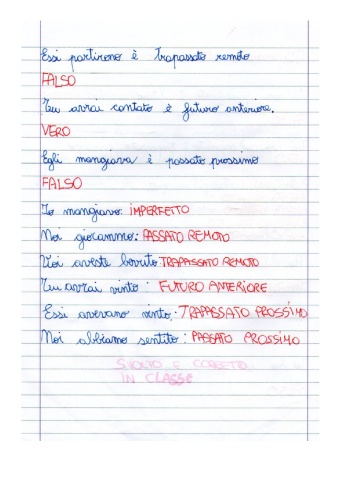 Essi partirono è trapassato remoto
FALSO
Tu avrai contato è futuro anteriore.
VERO
Egli mangiava è passato prossimo
FALSO
Io mangiavo: IMPERFETTO
Noi giocammo: PASSATO REMOTO
Voi aveste bevuto TRAPASSATO REMOTO
Tu avrai vinto: FUTURO ANTERIORE
Essi avevano vinto: TRAPASSATO PROSSIMO
Noi abbiamo sentito: PASSATO PROSSIMO
SVOLTO E CORRETTO
IN CLASSE